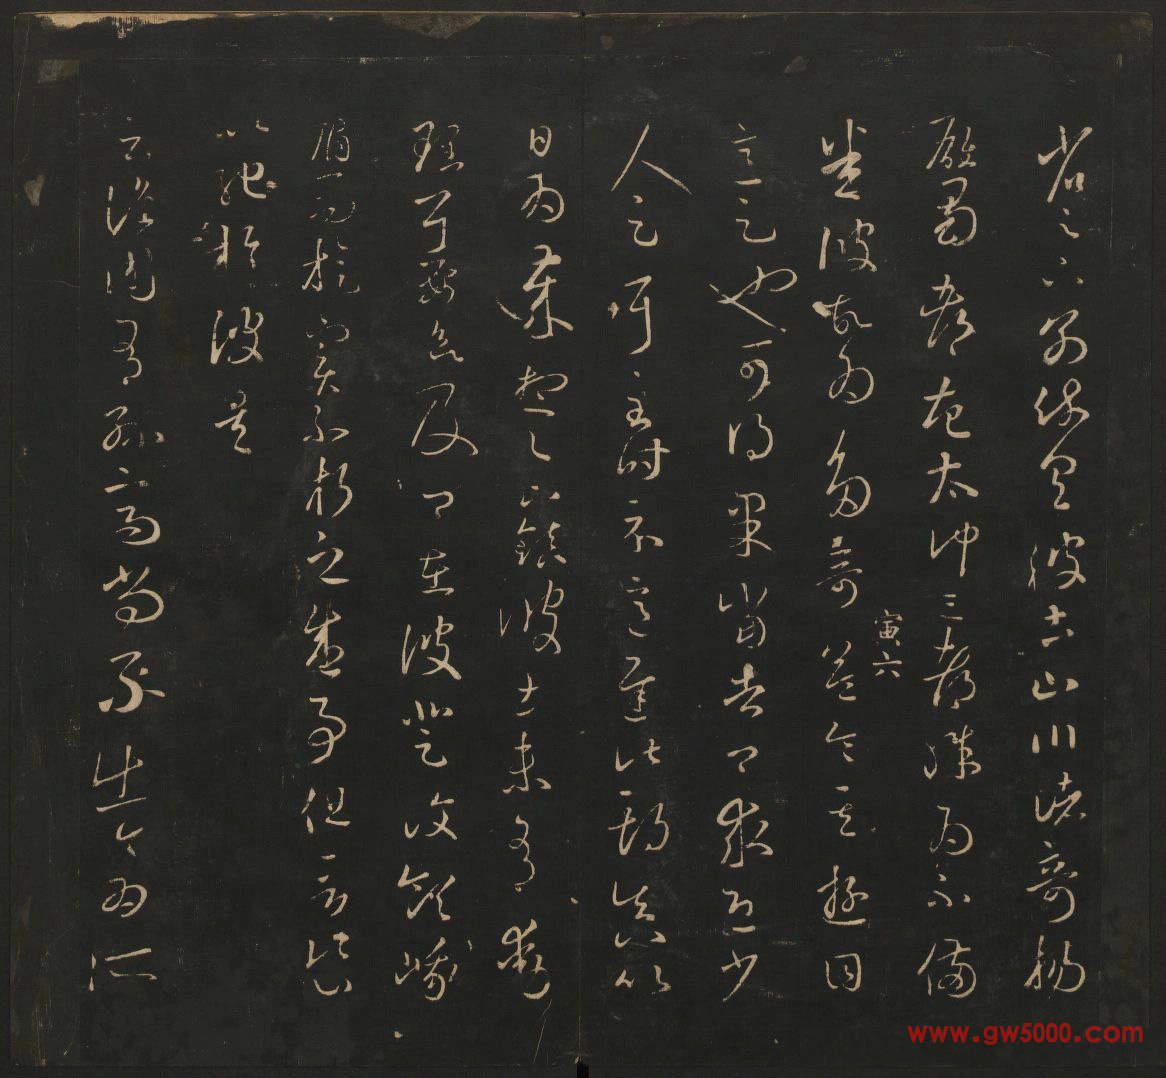 省足下別疏具彼土山川諸奇揚
雄蜀都左太沖三都殊為不備
寅六
悉彼故為多奇益令其遊目
意足也可得果當告卿求迎少
人足耳至時示意遲此期真以
日為歲想足下鎮彼土未有動
理耳要欲及卿在彼登汶領峨
眉而旋實不朽之盛事但言此心
以馳於彼矣
云譙周有孫高尚不出今為所
www.gw5000.com